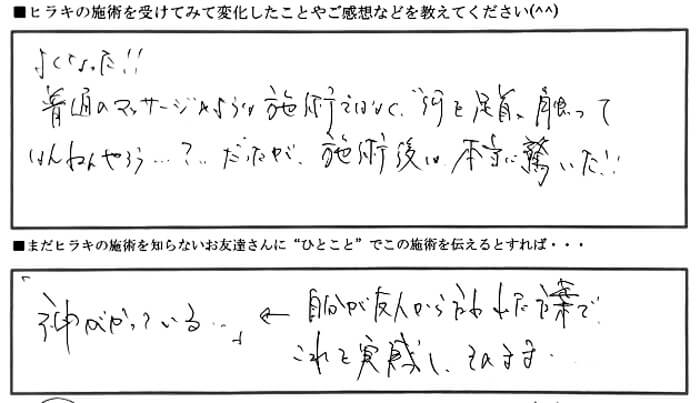 ■ヒラキの施術を受けてみて変化したことやご感想などを教えてください(^^)
よくなった!!
普通のマッサージのような施術ではなく、何を足首、触って
はんねんやろう…?..だったが、施術後は本当に驚いた!!
■まだヒラキの施術を知らないお友達さんに“ひとこと”でこの施術を伝えるとすれば・・・
「神がかっている…」← 自分が友人から言われた言葉で
これを実感しております…